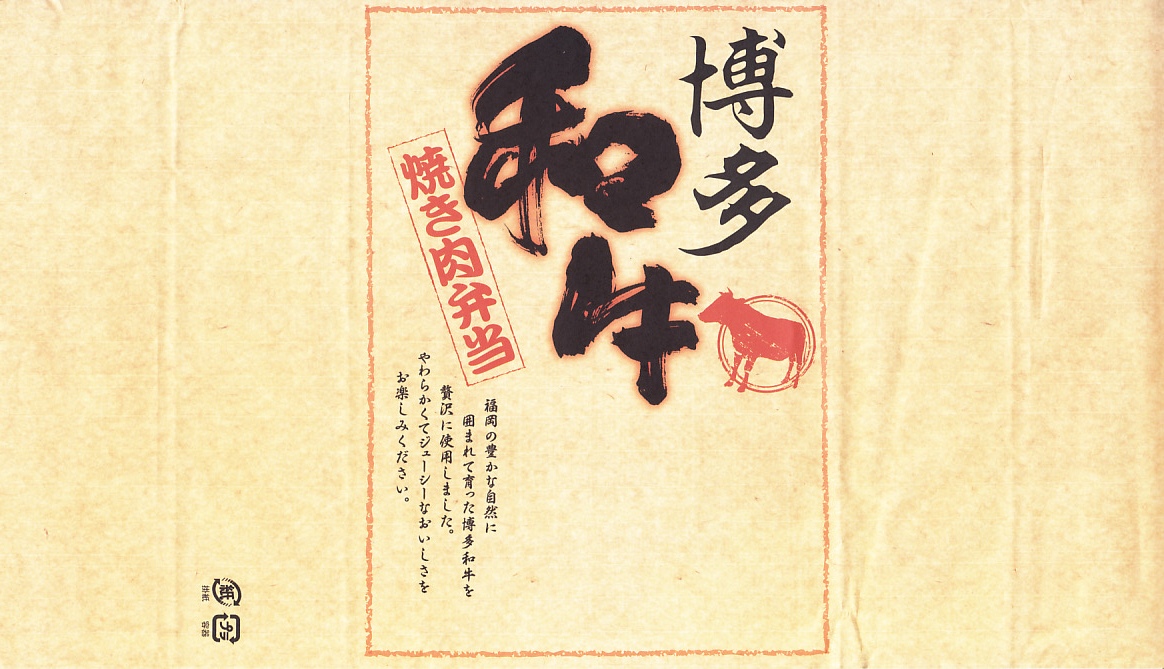 博多
和牛
焼き肉弁当
福岡の豊かな自然に
囲まれて育った博多和牛を
贅沢に使用しました。
やわらかくてジューシーなおいしさを
お楽しみください。
紙
掛紙
プラ
容器